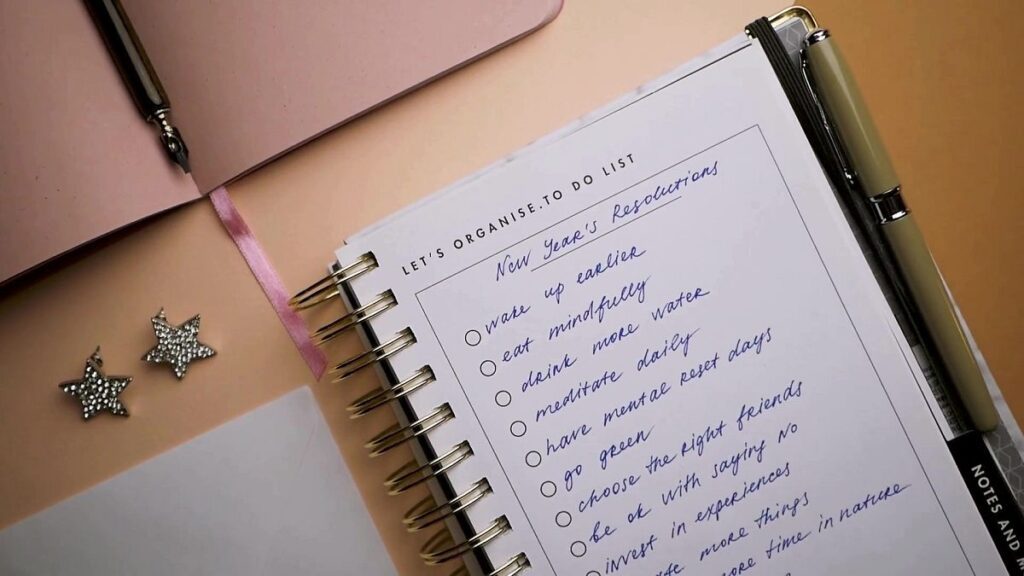 LET'S ORGANISE.TO DO LIST
New Year's Resolutions
wake up earlier
eat mindfully
drink more water
meditate daily
have mental reset days
go green
choose the right friends
be ok with saying no
invest in experiences
more things
more time in nature
NOTES AND